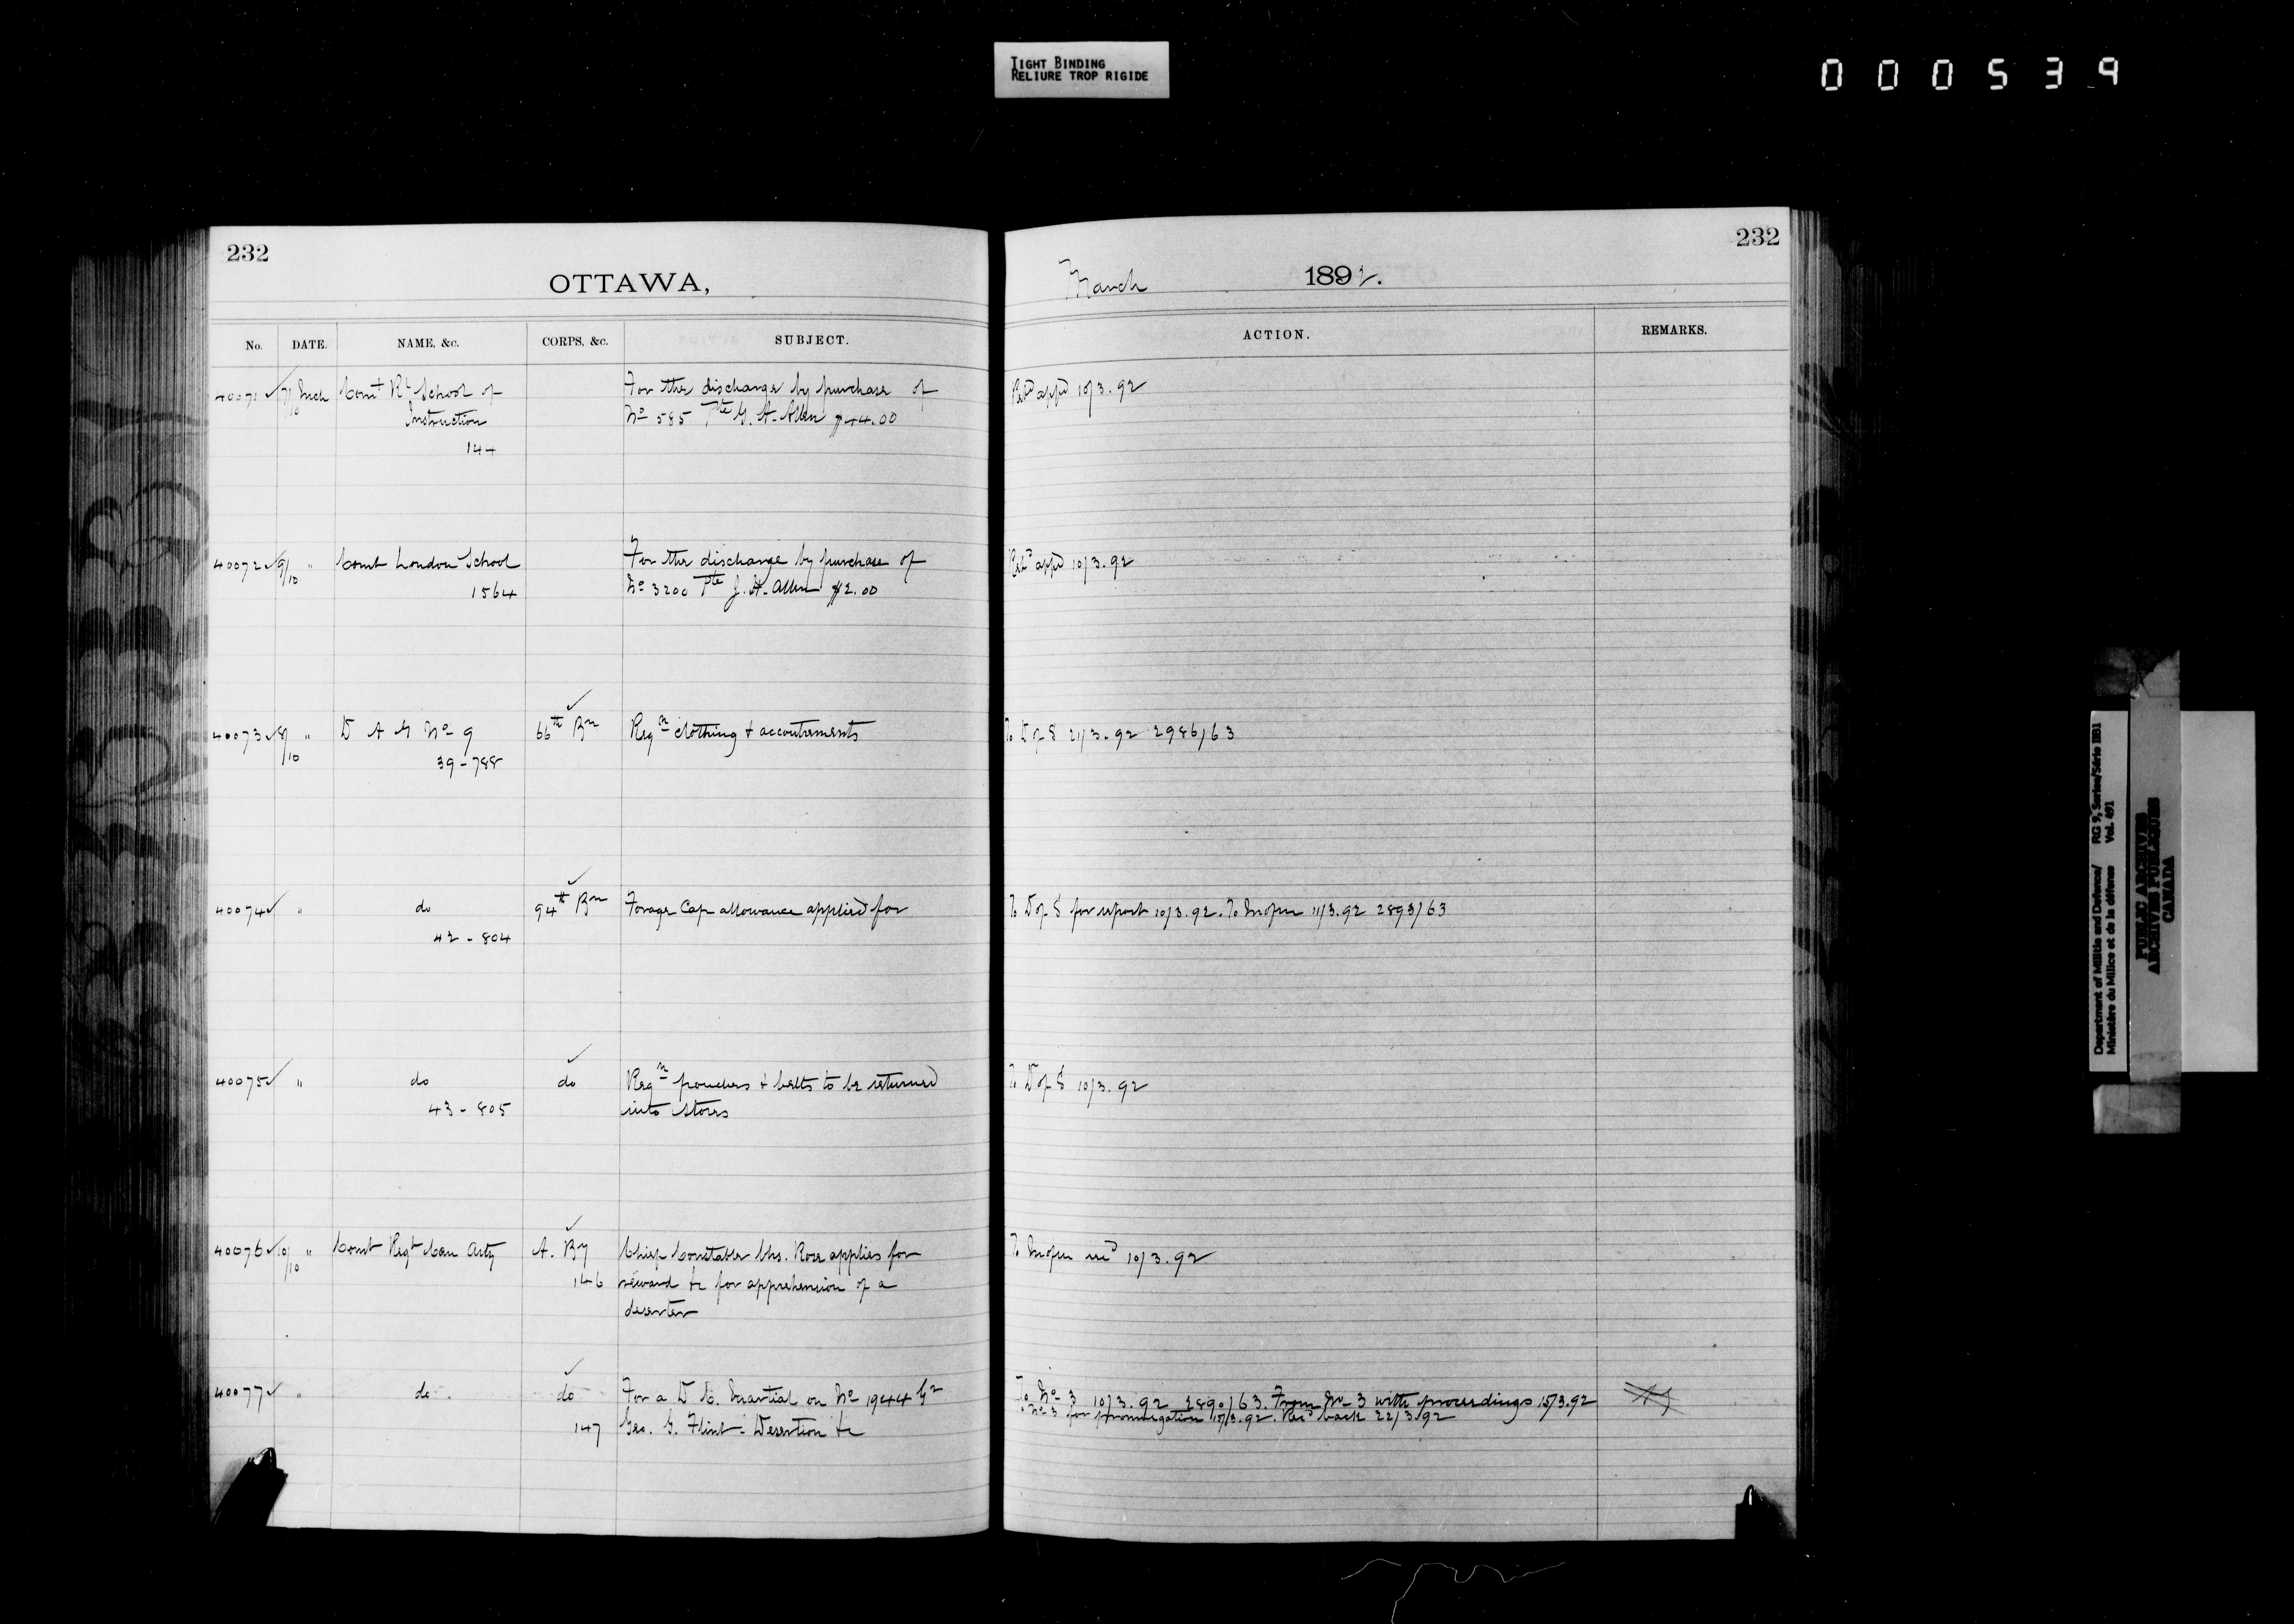 TIGHT BINDING
RELIURE TROP RIGIDE
000539
232
OTTAWA,
No. DATE. NAME, &c. CORPS, &c. SUBJECT.
40071 7/10 Inch Comt Rl School of For the discharge by purchase of
Instruction No 585 Pte G. A. Allen $44.00
144
40072 9/10 " Comt London School For the discharge by purchase of
1564 No 3200 Pte J. H. Allen $2.00
40073 8/10 " D A G No 9 66th Bn Reqn clothing & accoutrements
39-788
40074 " do 94th Bn Forage Cap allowance applied for
42-804
40075 " do do Reqn pouches & belts to be returned
43-805 into stores
40076 10/10 " Comt Regt Can Arty A. By Chief Constable Chs. Ross applies for
146 reward &c for apprehension of a
deserter
40077 " do do For a D. C. Martial on No 1944 Gr
147 Geo. G. Flint - Desertion &c
232
March 1892.
ACTION. REMARKS.
Retd appd 10/3.92
Retd appd 10/3.92
To D of S 21/3.92 2986/63
To D of S for report 10/3.92. To 11/3.92 2893/63
To D of S 10/3.92
To 10/3.92
To No 3 10/3.92 2890/63. From No 3 with proceedings 15/3.92
To No 3 for promulgation 15/3.92. Recd back 22/3.92
Department of Militia and Defence/ RG 9, Series/Série IIB1
Ministère du Milice et de la défense Vol. 491
PUBLIC ARCHIVES
ARCHIVES PUBLIQUES
CANADA